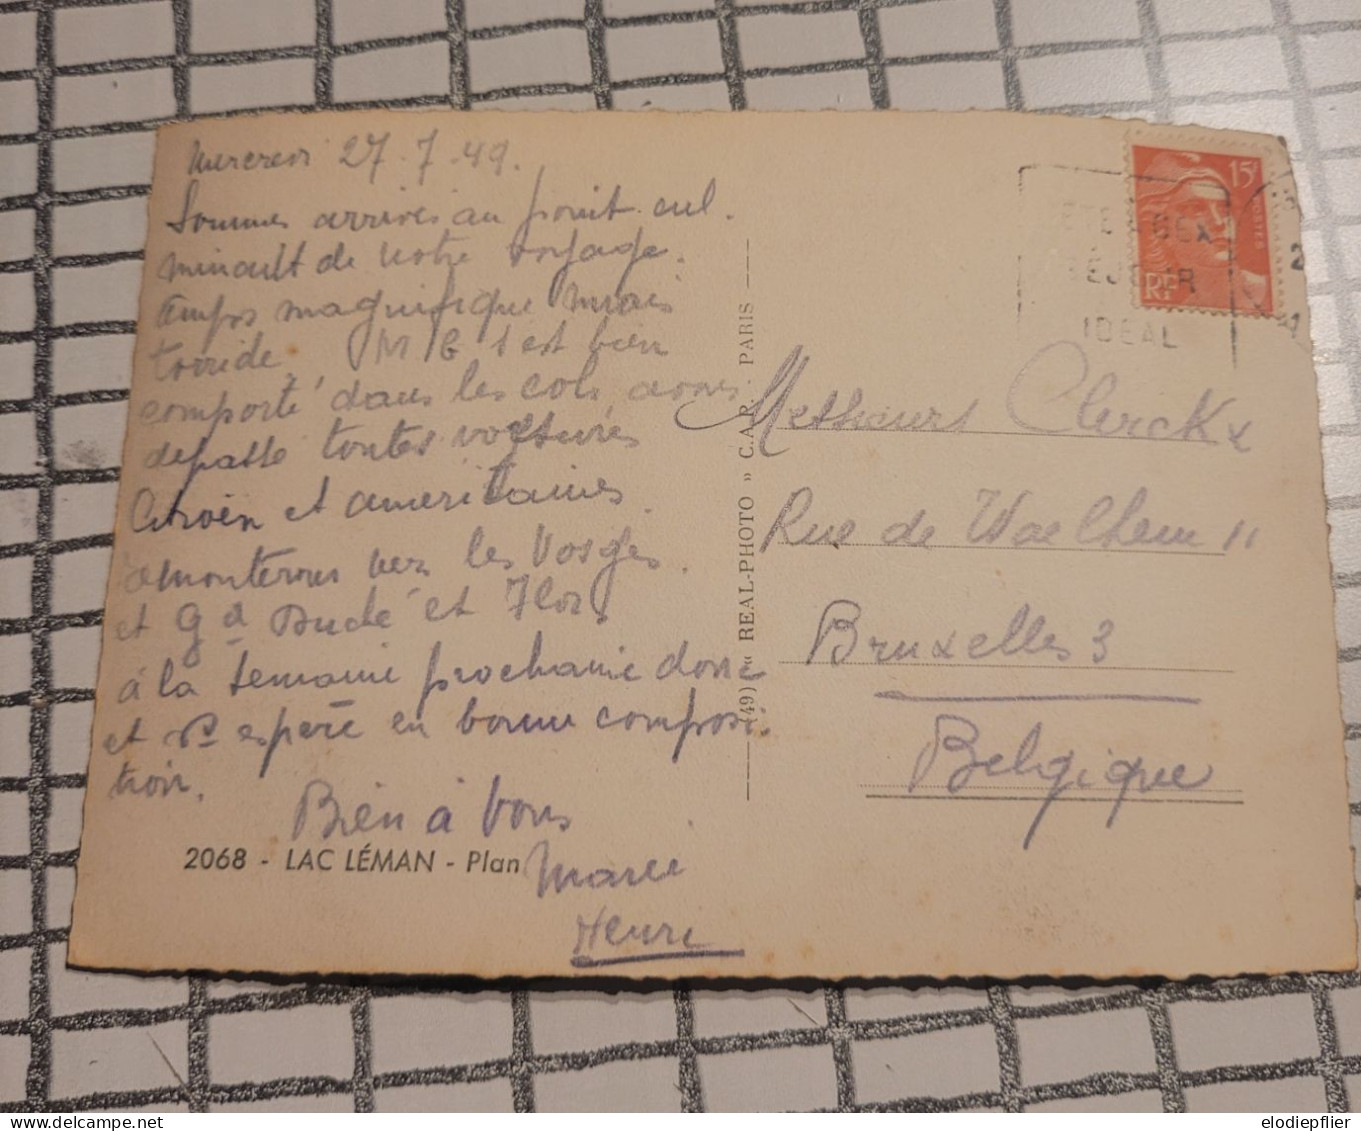 Mercredi 27.7.49.
Sommes arrivés au point cul.
minault de notre voyage.
temps magnifique mais
torride. M G s'est bien
comporté dans les cols avons
dépassé toutes voitures
Citroën et americaines.
Remonterons vers les Vosges.
et Gd Duché et Flor
à la semaine prochaine donc
et espere en bonne composi.
tion.
Bien à vous
Henri
2068 - LAC LÉMAN - Plan
(49) « REAL-PHOTO » C.A.P. PARIS
15F
POSTES
RF
SÉJOUR
IDEAL
Clerckx
Rue de Waelhem 11
Bruxelles 3
Belgique
elodiepflier